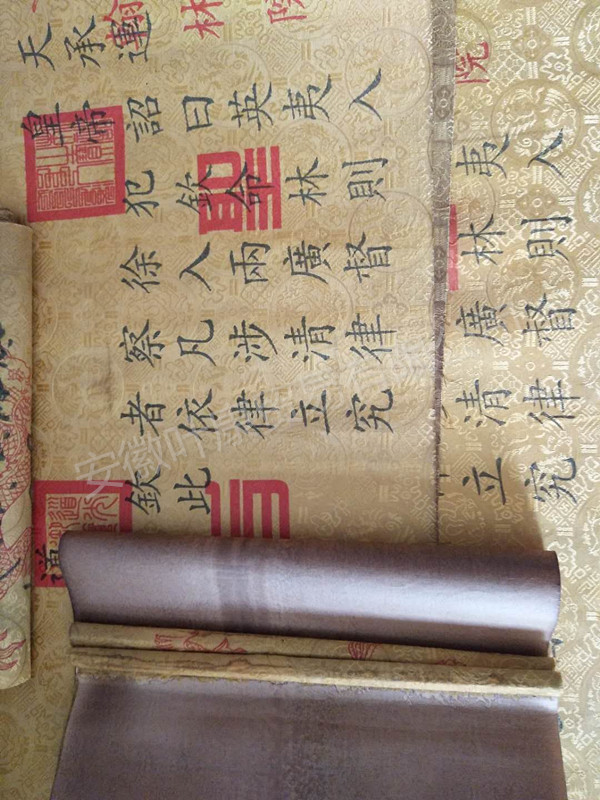 天承運
翰林院
皇帝詔曰英夷入
犯欽命林則
徐入兩廣督
察凡涉清律
者依律立究
欽此
聖
院
夷入
林則
廣督
清律
立究